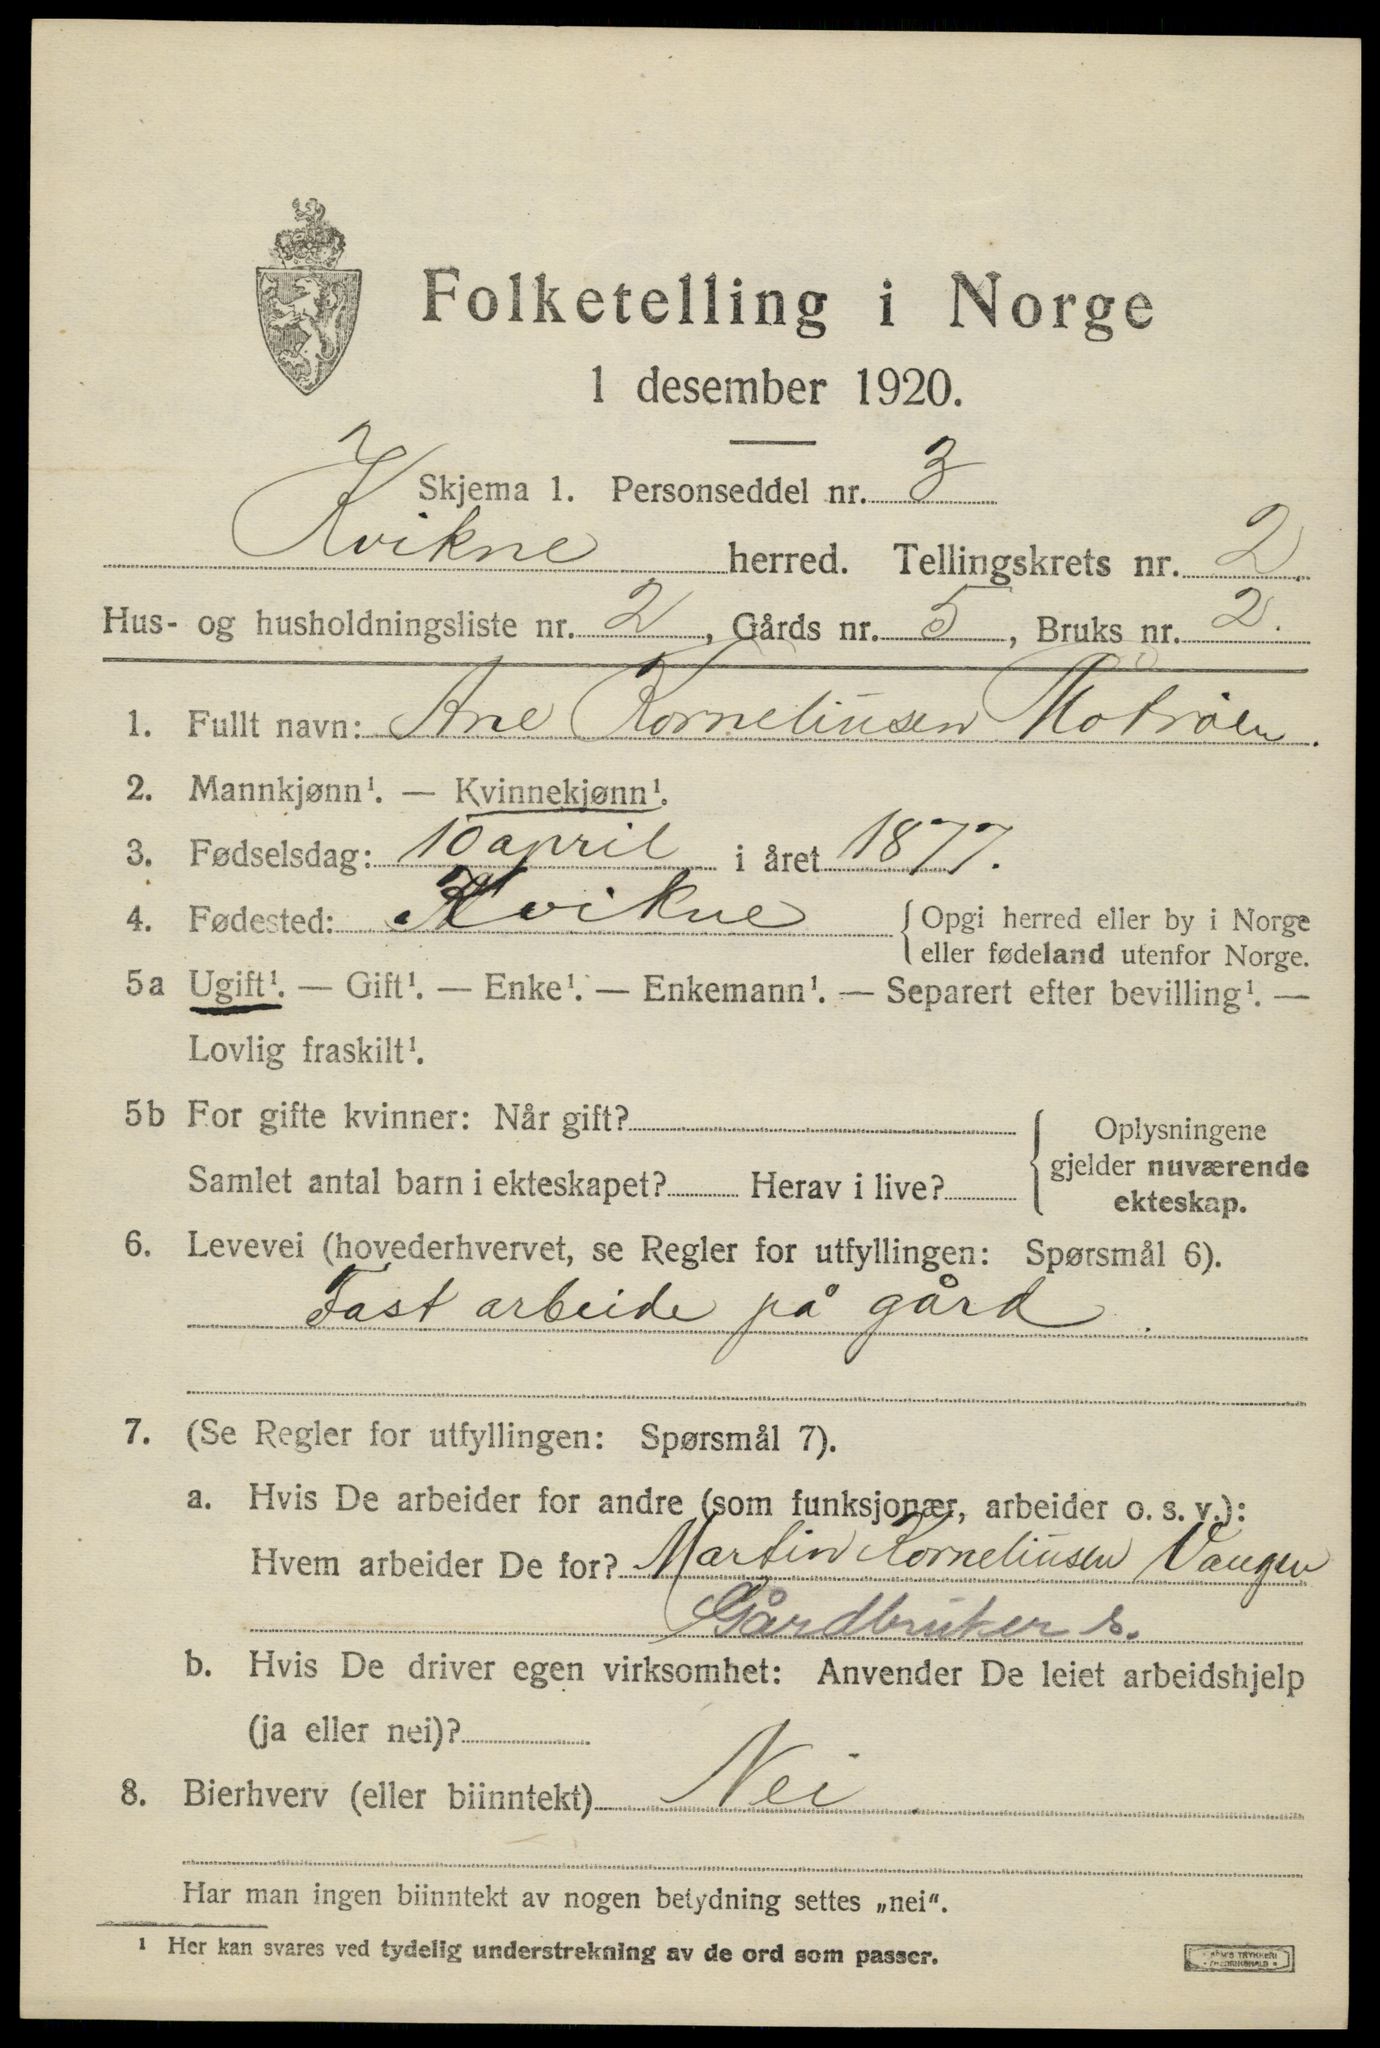 Folketelling i Norge
1 desember 1920.
Skjema 1. Personseddel nr. 3
Kvikne herred. Tellingskrets nr. 2.
Hus- og husholdningsliste nr. 2, Gårds nr. 5, Bruks nr. 2.
1. Fullt navn: Ane Korneliusen Motrøen.
2. Mannkjønn¹. — Kvinnekjønn¹.
3. Fødselsdag: 10 april i året 1877.
4. Fødested: Kvikne { Opgi herred eller by i Norge
eller fødeland utenfor Norge.
5a Ugift¹. — Gift¹. — Enke¹. — Enkemann¹. — Separert efter bevilling¹. —
Lovlig fraskilt¹.
5b For gifte kvinner: Når gift?
Samlet antal barn i ekteskapet? Herav i live?
{ Oplysningene
gjelder nuværende
ekteskap.
6. Levevei (hovederhvervet, se Regler for utfyllingen: Spørsmål 6).
Fast arbeide på gård.
7. (Se Regler for utfyllingen: Spørsmål 7).
a. Hvis De arbeider for andre (som funksjonær, arbeider o. s. v.):
Hvem arbeider De for? Martin Korneliusen Vangen
Gårdbruker s.
b. Hvis De driver egen virksomhet: Anvender De leiet arbeidshjelp
(ja eller nei)?
8. Bierhverv (eller biinntekt) Nei.
Har man ingen biinntekt av nogen betydning settes „nei“.
¹ Her kan svares ved tydelig understrekning av de ord som passer.